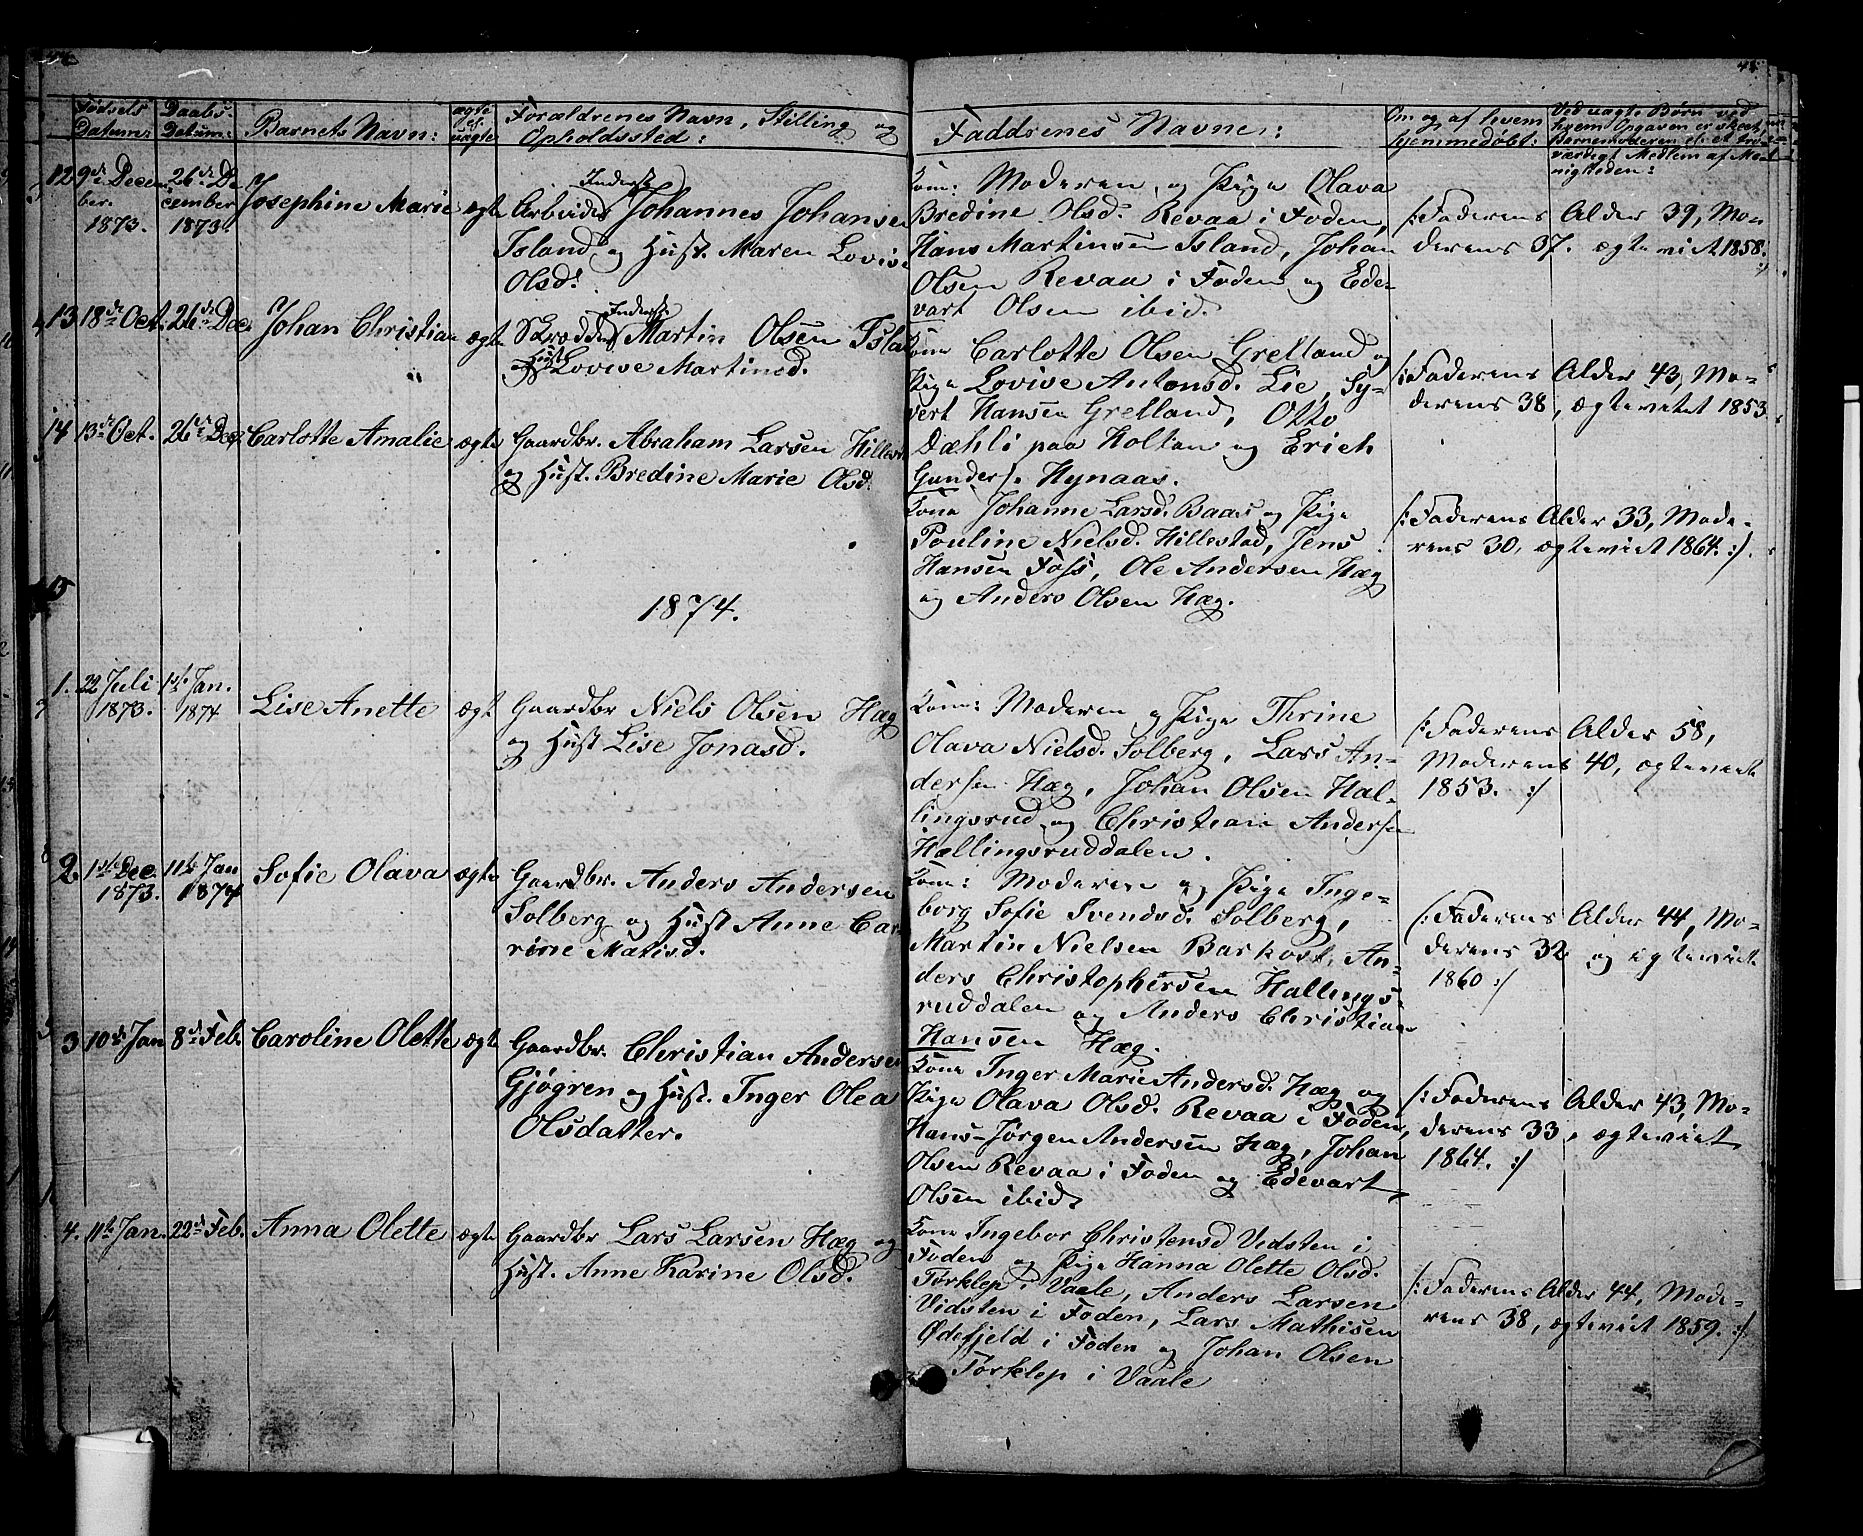 Fødsels Datum:
Daabs- Datum:
Barnets Navn:
ægte el. uægte
Forældrenes Navn, Stilling og
Opholdssted:
Faddrenes Navne:
Om og af hvem
hjemmedøbt:
Ved uægte Børn ved
hvem Opgaven er skeet,
Barnemoderen el. et tro-
værdigt Medlem af Me-
nigheden:
12 9de Decem-
ber.
1873.
26de De-
cember
1873
Josephine Marie
ægte
Inderst
Arbeider Johannes Johansen
Island og Hust. Maren Lovise
Olsd.
Kone: Moderen og Pige Olava
Bredine Olsd. Revaa i Foden,
Hans Martinsen Island, Johan
Olsen Revaa i Foden og Ede-
vart Olsen ibid.
/: Faderens Alder 39, Mo-
derens 37. ægteviet 1858. :/
13 18de Oct. 26de Dec.
Johan Christian
ægte
Inderst
Skrædder Martin Olsen Isla
og Hust. Lovise Martinsd.
Kone Carlotte Olsen Grelland og
Pige Lovise Antonsd. Lie, Sy-
vert Hansen Grelland, Otto
Dæhli paa Holtan og Erich
Gunders. Hynaas.
/: Faderens Alder 43, Mo-
derens 38, ægteviet 1853
14 13de Oct. 26de Dec.
Carlotte Amalie
ægte
Gaardbr. Abraham Larsen Hillest
og Hust. Bredine Marie Olsd.
Kone Johanne Larsd. Baas og Pige
Pauline Nielsd. Hillestad, Jens
Hansen Foss, Ole Andersen Hæg
og Anders Olsen Hæg.
/: Faderens Alder 33, Mode-
rens 30, ægteviet 1864. :/.
15
1874.
1. 22 Juli
1873.
1ste Jan.
1874
Lise Anette
ægte
Gaardbr Niels Olsen Hæg
og Hust Lise Jonasd.
Kone: Moderen og Pige Thrine
Olava Nielsd. Solberg, Lars An-
dersen Hæg, Johan Olsen Hal-
lingsrud og Christian Andersen
Hallingsruddalen.
/: Faderens Alder 58,
Moderens 40, ægteviet
1853. :/
2. 1ste Dec.
1873.
11te Jan
1874
Sofie Olava
ægte
Gaardbr. Anders Andersen
Solberg og Hust Anne Ca-
rine Matisd.
Kone: Moderen og Pige Inge-
borg Sofie Svendsd. Solberg,
Martin Nielsen Barkost, An-
ders Christophersen Hallings-
ruddalen og Anders Christian
Hansen Hæg.
/: Faderens Alder 44, Mo-
derens 32 og ægteviet
1860 :/
3. 10de Jan 8de Feb.
Caroline Olette
ægte
Gaardbr. Christian Andersen
Gjøgren og Hust. Inger Olea
Olsdatter.
Kone Inger Marie Andersd. Hæg og
Pige Olava Olsd. Revaa i Foden,
Hans-Jørgen Andersen Hæg, Johan
Olsen Revaa i Foden og Edevart
Olsen ibid.
/: Faderens Alder 43, Mo-
derens 33, ægteviet
1864. :/
4. 11te Jan. 22de Feb.
Anna Olette
ægte
Gaardbr Lars Larsen Hæg og
Hust. Anne Karine Olsd.
Kone Ingebor Christensd Vidsten i
Foden og Pige Hanna Olette Olsd.
Tørklep i Vaale, Anders Larsen
Vidsten i Foden, Lars Mathisen
Ødefjeld i Foden og Johan Olsen
Tørklep i Vaale
/: Faderens Alder 44, Mode-
rens 38, ægteviet 1859. :/